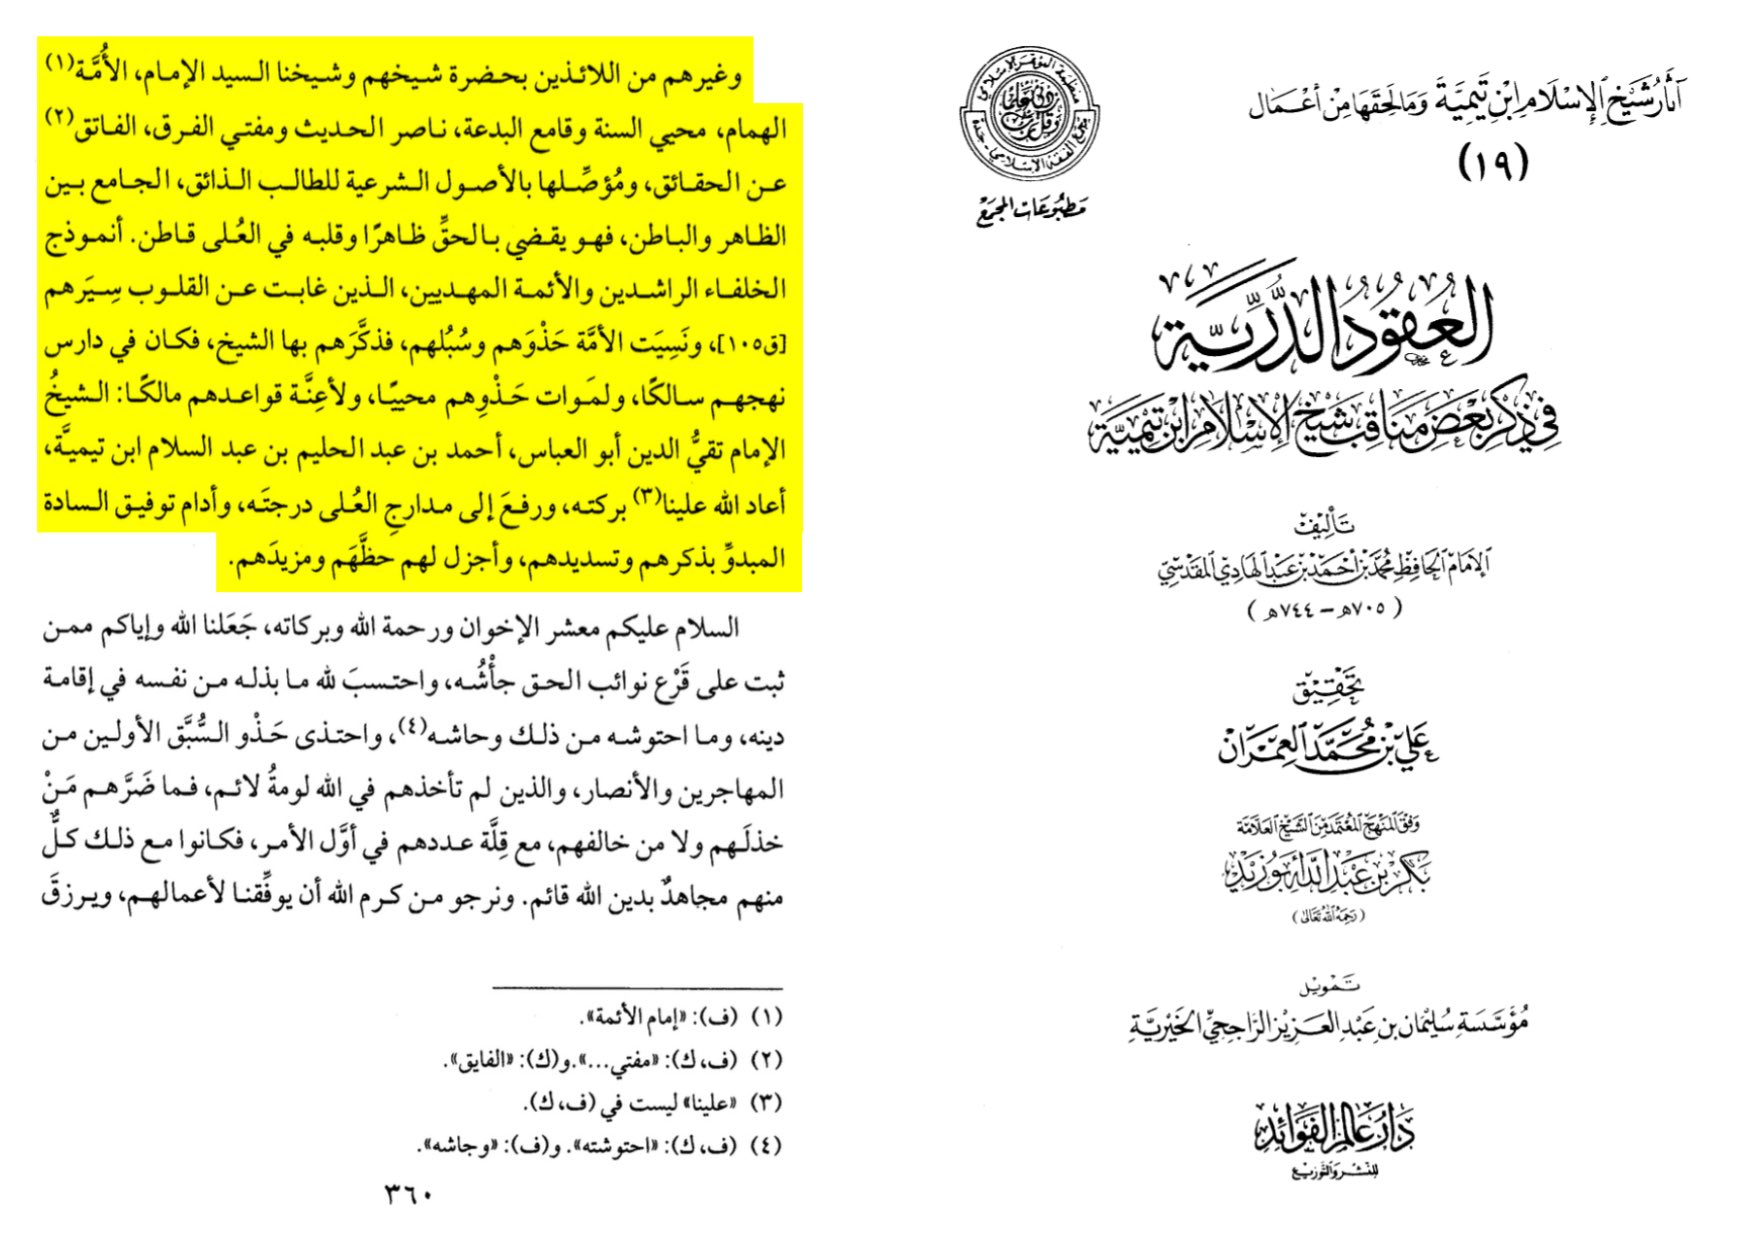 آثَارُ شَيْخِ الإِسْلَامِ ابْنِ تَيْمِيَّةَ وَمَا لَحِقَهَا مِنْ أَعْمَال
(١٩)
مَطبُوعَات المجمَع
العُقُودُ الدُّرِّيَّة
فِي ذِكْرِ بَعْضِ مَنَاقِبِ شَيْخِ الإِسْلَامِ ابْنِ تَيْمِيَّة
تَأْلِيْف
الإِمَامِ الحَافِظِ مُحَمَّد بْنِ أَحْمَد بْنِ عَبْدِ الهَادِي المَقْدِسِيّ
(٧٠٥هـ – ٧٤٤هـ)
تَحْقِيْق
عَلِيّ بْن مُحَمَّد العِمْرَان
وَفْقَ المَنْهَجِ المُعْتَمَدِ مِنَ الشَّيْخِ العَلَّامَة
بَكْر بْن عَبْدِ اللَّه أَبُو زَيْد
(رَحِمَهُ اللَّه تَعَالَى)
تَمْوِيْل
مُؤَسَّسَةِ سُلَيْمَان بْن عَبْدِ العَزِيْز الرَّاجِحِيّ الخَيْرِيَّةِ
دَارُ عَالَمِ الفَوَائِد
لِلنَّشْرِ وَالتَّوْزِيْع
وغيرهم من اللائذين بحضرة شيخهم وشيخنا السيد الإمام، الأُمَّة(١)
الهمام، محيي السنة وقامع البدعة، ناصر الحديث ومفتي الفرق، الفاتق(٢)
عن الحقائق، ومُؤصِّلها بالأصول الشرعية للطالب الذائق، الجامع بين
الظاهر والباطن، فهو يقضي بالحقِّ ظاهرًا وقلبه في العُلى قاطن. أنموذج
الخلفاء الراشدين والأئمة المهديين، الذين غابت عن القلوب سِيَرهم
[ق١٠٥]، ونَسِيَت الأمَّة حَذْوَهم وسُبُلهم، فذكَّرَهم بها الشيخ، فكان في دارس
نهجهم سالكًا، ولمَوات حَذْوِهم محييًا، ولأعِنَّة قواعدهم مالكًا: الشيخُ
الإمام تقيُّ الدين أبو العباس، أحمد بن عبد الحليم بن عبد السلام ابن تيميَّة،
أعاد الله علينا(٣) بركته، ورفعَ إلى مدارجِ العُلى درجتَه، وأدام توفيق السادة
المبدوِّ بذكرهم وتسديدهم، وأجزل لهم حظَّهَم ومزيدَهم.
السلام عليكم معشر الإخوان ورحمة الله وبركاته، جَعَلنا الله وإياكم ممن
ثبت على قَرْع نوائب الحق جأْشُه، واحتسبَ لله ما بذله من نفسه في إقامة
دينه، وما احتوشه من ذلك وحاشه(٤)، واحتذى حَذْو السُّبَّق الأولين من
المهاجرين والأنصار، والذين لم تأخذهم في الله لومةُ لائم، فما ضَرَّهم مَنْ
خذلَهم ولا من خالفهم، مع قِلَّة عددهم في أوَّل الأمر، فكانوا مع ذلك كلٌّ
منهم مجاهدٌ بدين الله قائم. ونرجو من كرم الله أن يوفِّقنا لأعمالهم، ويرزقَ
(١) (ف): «إمام الأئمة».
(٢) (ف، ك): «مفتي...». و(ك): «الفايق».
(٣) «علينا» ليست في (ف، ك).
(٤) (ف، ك): «احتوشته». و(ف): «وجاشه».
٣٦٠